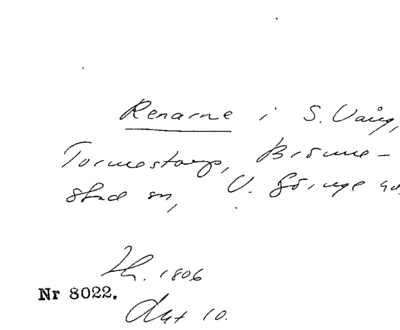 Renarne i S. Vång,
Tormestorp, Brönne-
stad sn, V. Göinge
Lh. 1806
Nr 8022.
Akt 10.